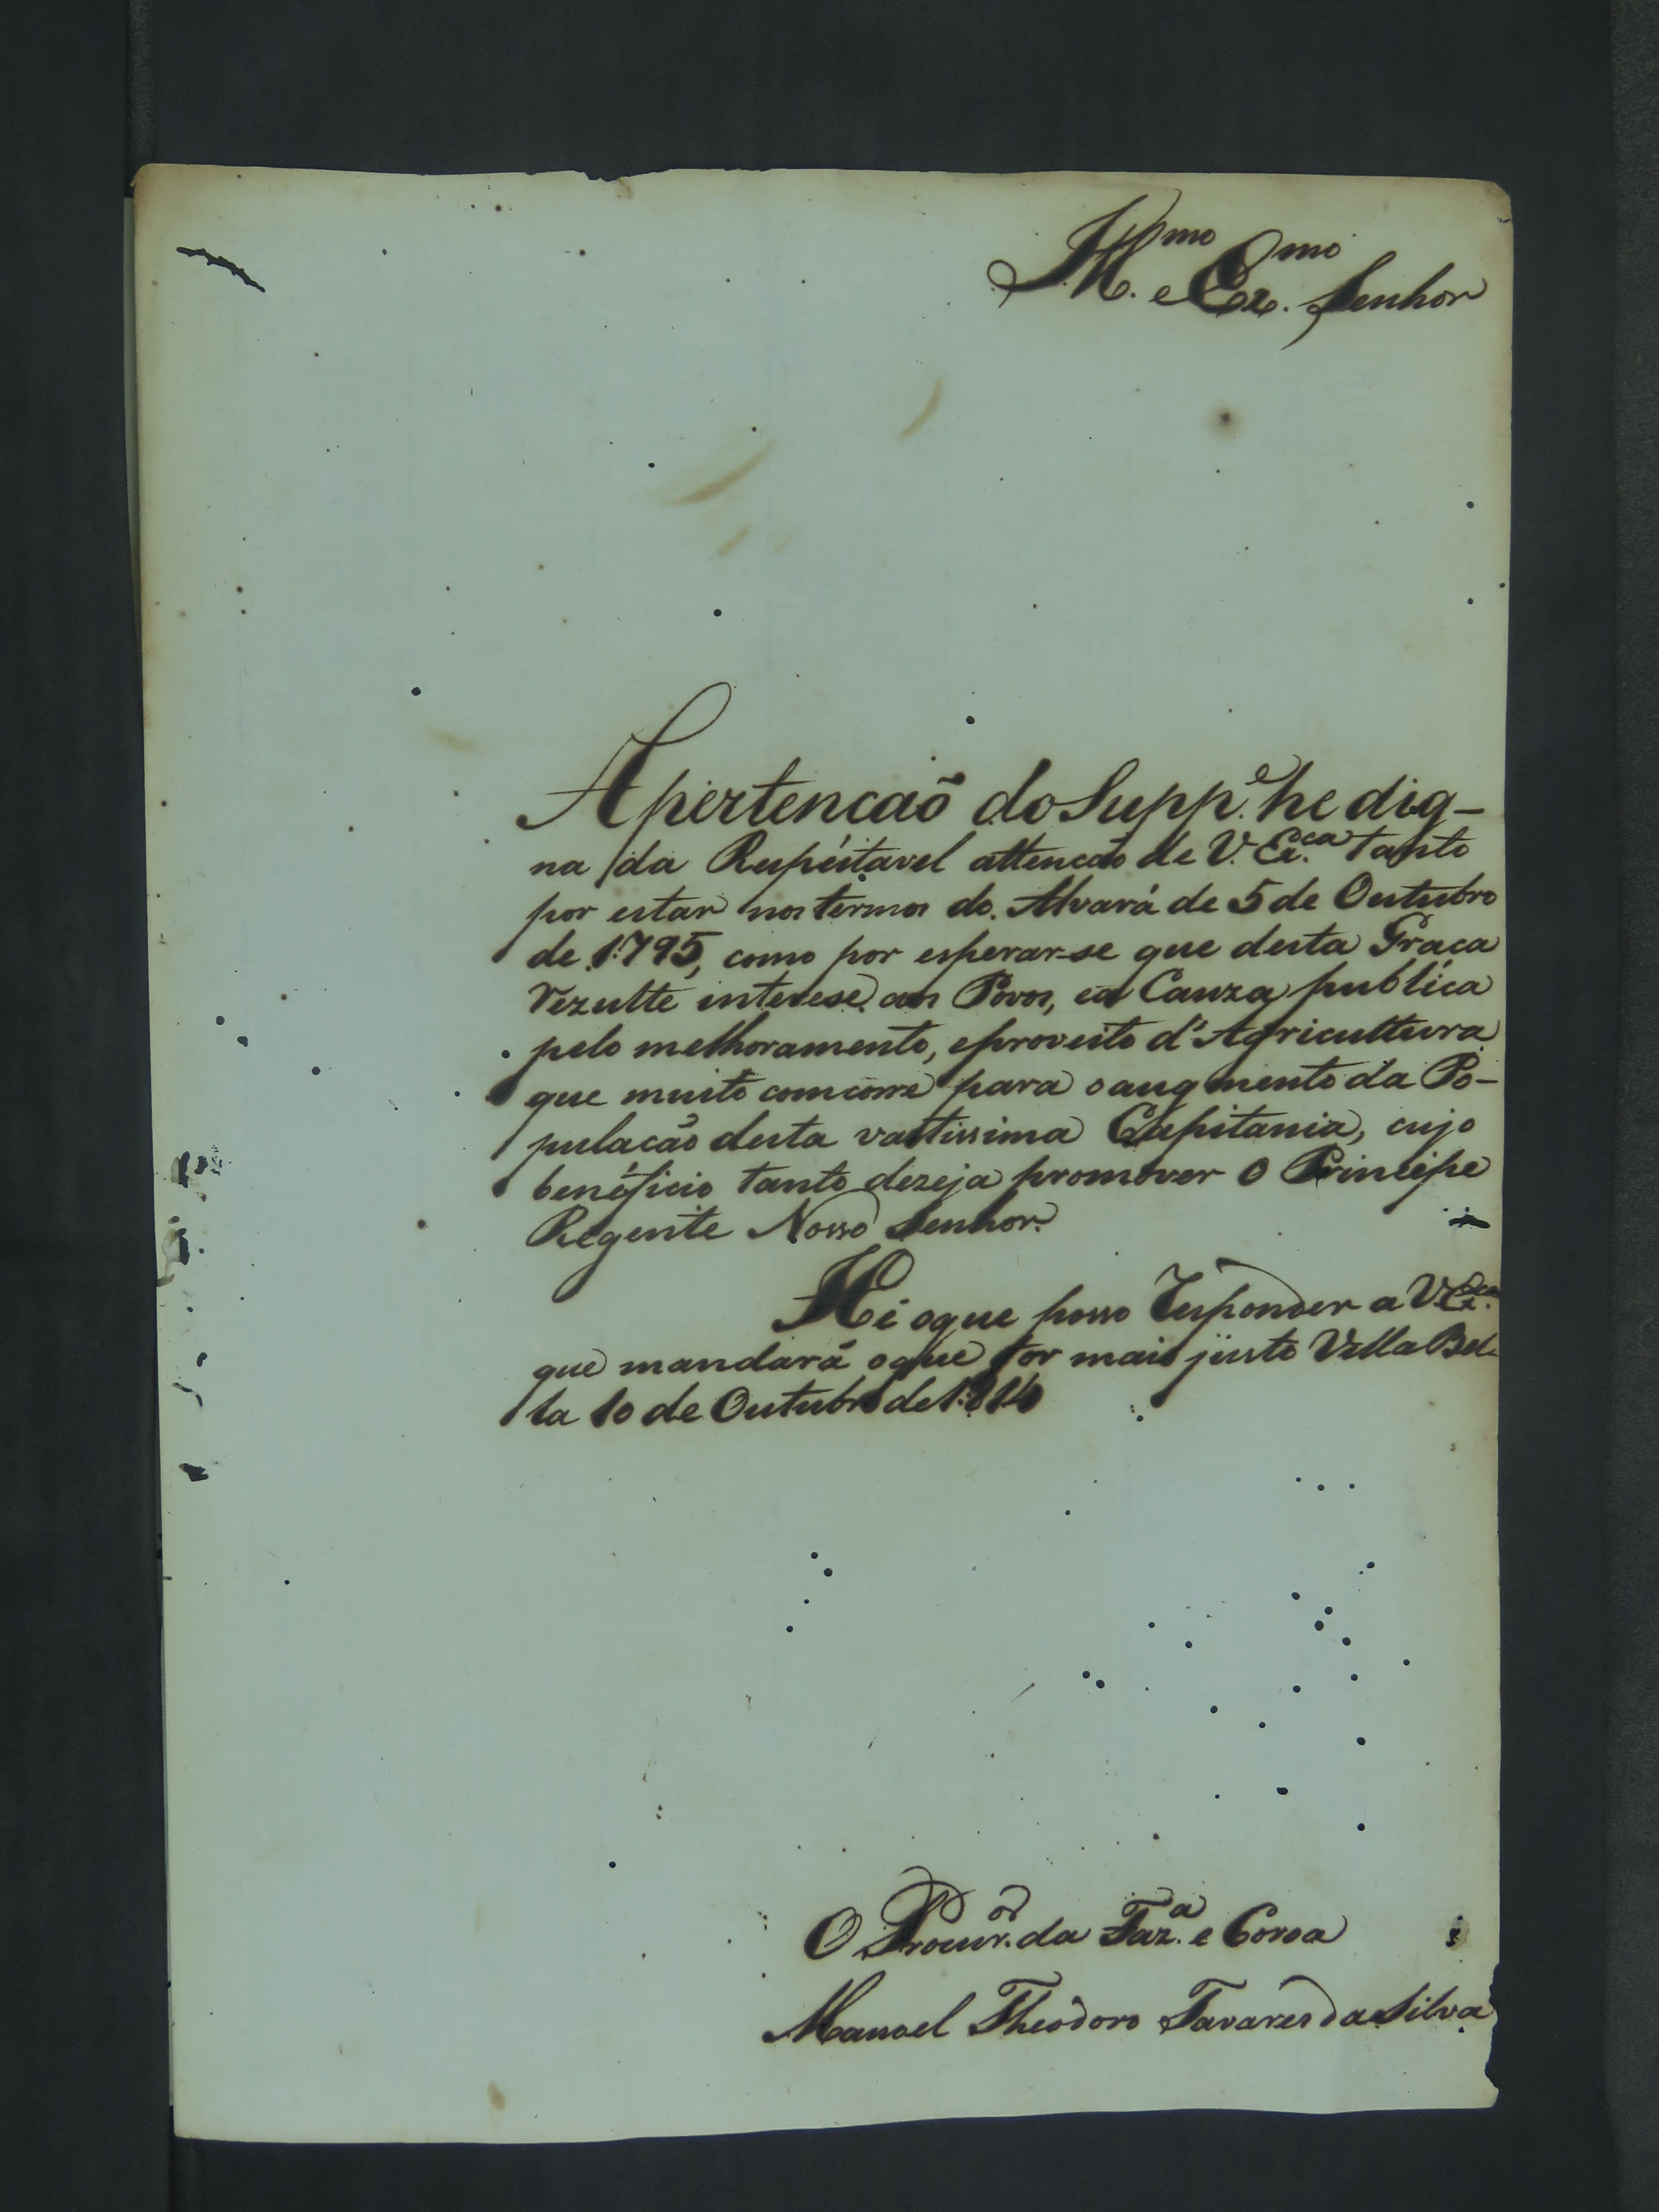 Ill.mo e Ex.mo Senhor
A pertencaõ do Supp.e he dig-
na da Respeitavel attencaõ de V. Ex.ca tanto
por estar nos termos do Alvará de 5 de Outubro
de 1795, como por esperar-se que desta Graca
rezulte interese aos Povos, ea Cauza publica
pelo melhoramento, eproveito d'Agricultura
que muito comcorre para oaugmento da Po-
pulacaõ desta vastissima Capitania, cujo
beneficio tanto dezeja promover O Principe
Regente Nosso Senhor.
He oque posso Responder a V. Ex.ca
que mandará oque for mais justo Villa Bel-
la 10 de Outubro de 1814
O Procur.or da Faz.a e Coroa
Manoel Theodoro Tavares da Silva